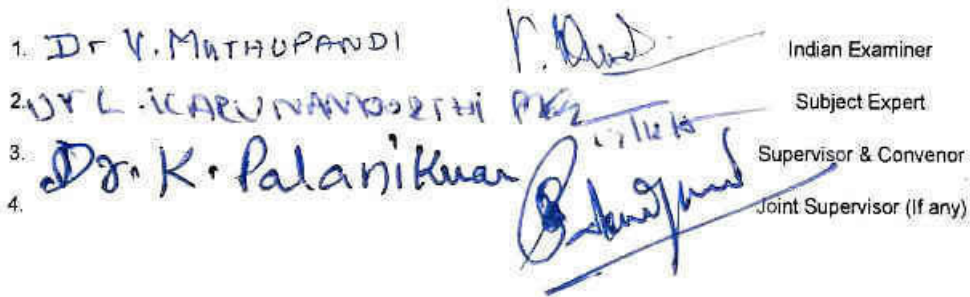 1. Dr V. MUTHUPANDI Indian Examiner
2. Dr L. KARUNAMOORTHI Subject Expert
3. Dr. K. Palanikumar Supervisor & Convenor
4. Joint Supervisor (If any)